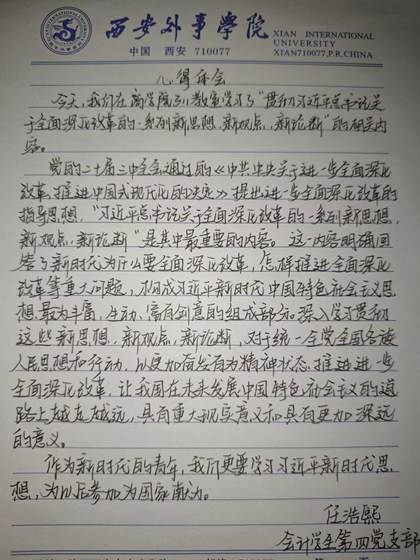 西安外事学院
XIAN INTERNATIONAL
UNIVERSITY
中国 西安 710077
XIAN710077,P.R.CHINA
心得体会
今天,我们在商学院311教室学习了“贯彻习近平总书记关
于全面深化改革的一系列新思想、新观点、新论断”的相关内
容。
党的二十届三中全会通过的《中共中央关于进一步全面深化
改革、推进中国式现代化的决定》提出进一步全面深化改革的
指导思想,“习近平总书记关于全面深化改革的一系列新思想、
新观点、新论断”是其中最重要的内容。这一内容明确回
答了新时代为什么要全面深化改革、怎样推进全面深化
改革等重大问题,构成习近平新时代中国特色社会主义思
想最为丰富、生动、富有创意的组成部分。深入学习贯彻
这些新思想、新观点、新论断,对于统一全党全国各族
人民思想和行动,以更加奋发有为精神状态推进进一步
全面深化改革,让我国在未来发展中国特色社会主义的道
路上越走越远,具有重大现实意义和具有更加深远
的意义。
作为新时代的青年,我们更要学习习近平新时代思
想,为以后参加为国家献力。
任浩熙
会计学生第四党支部